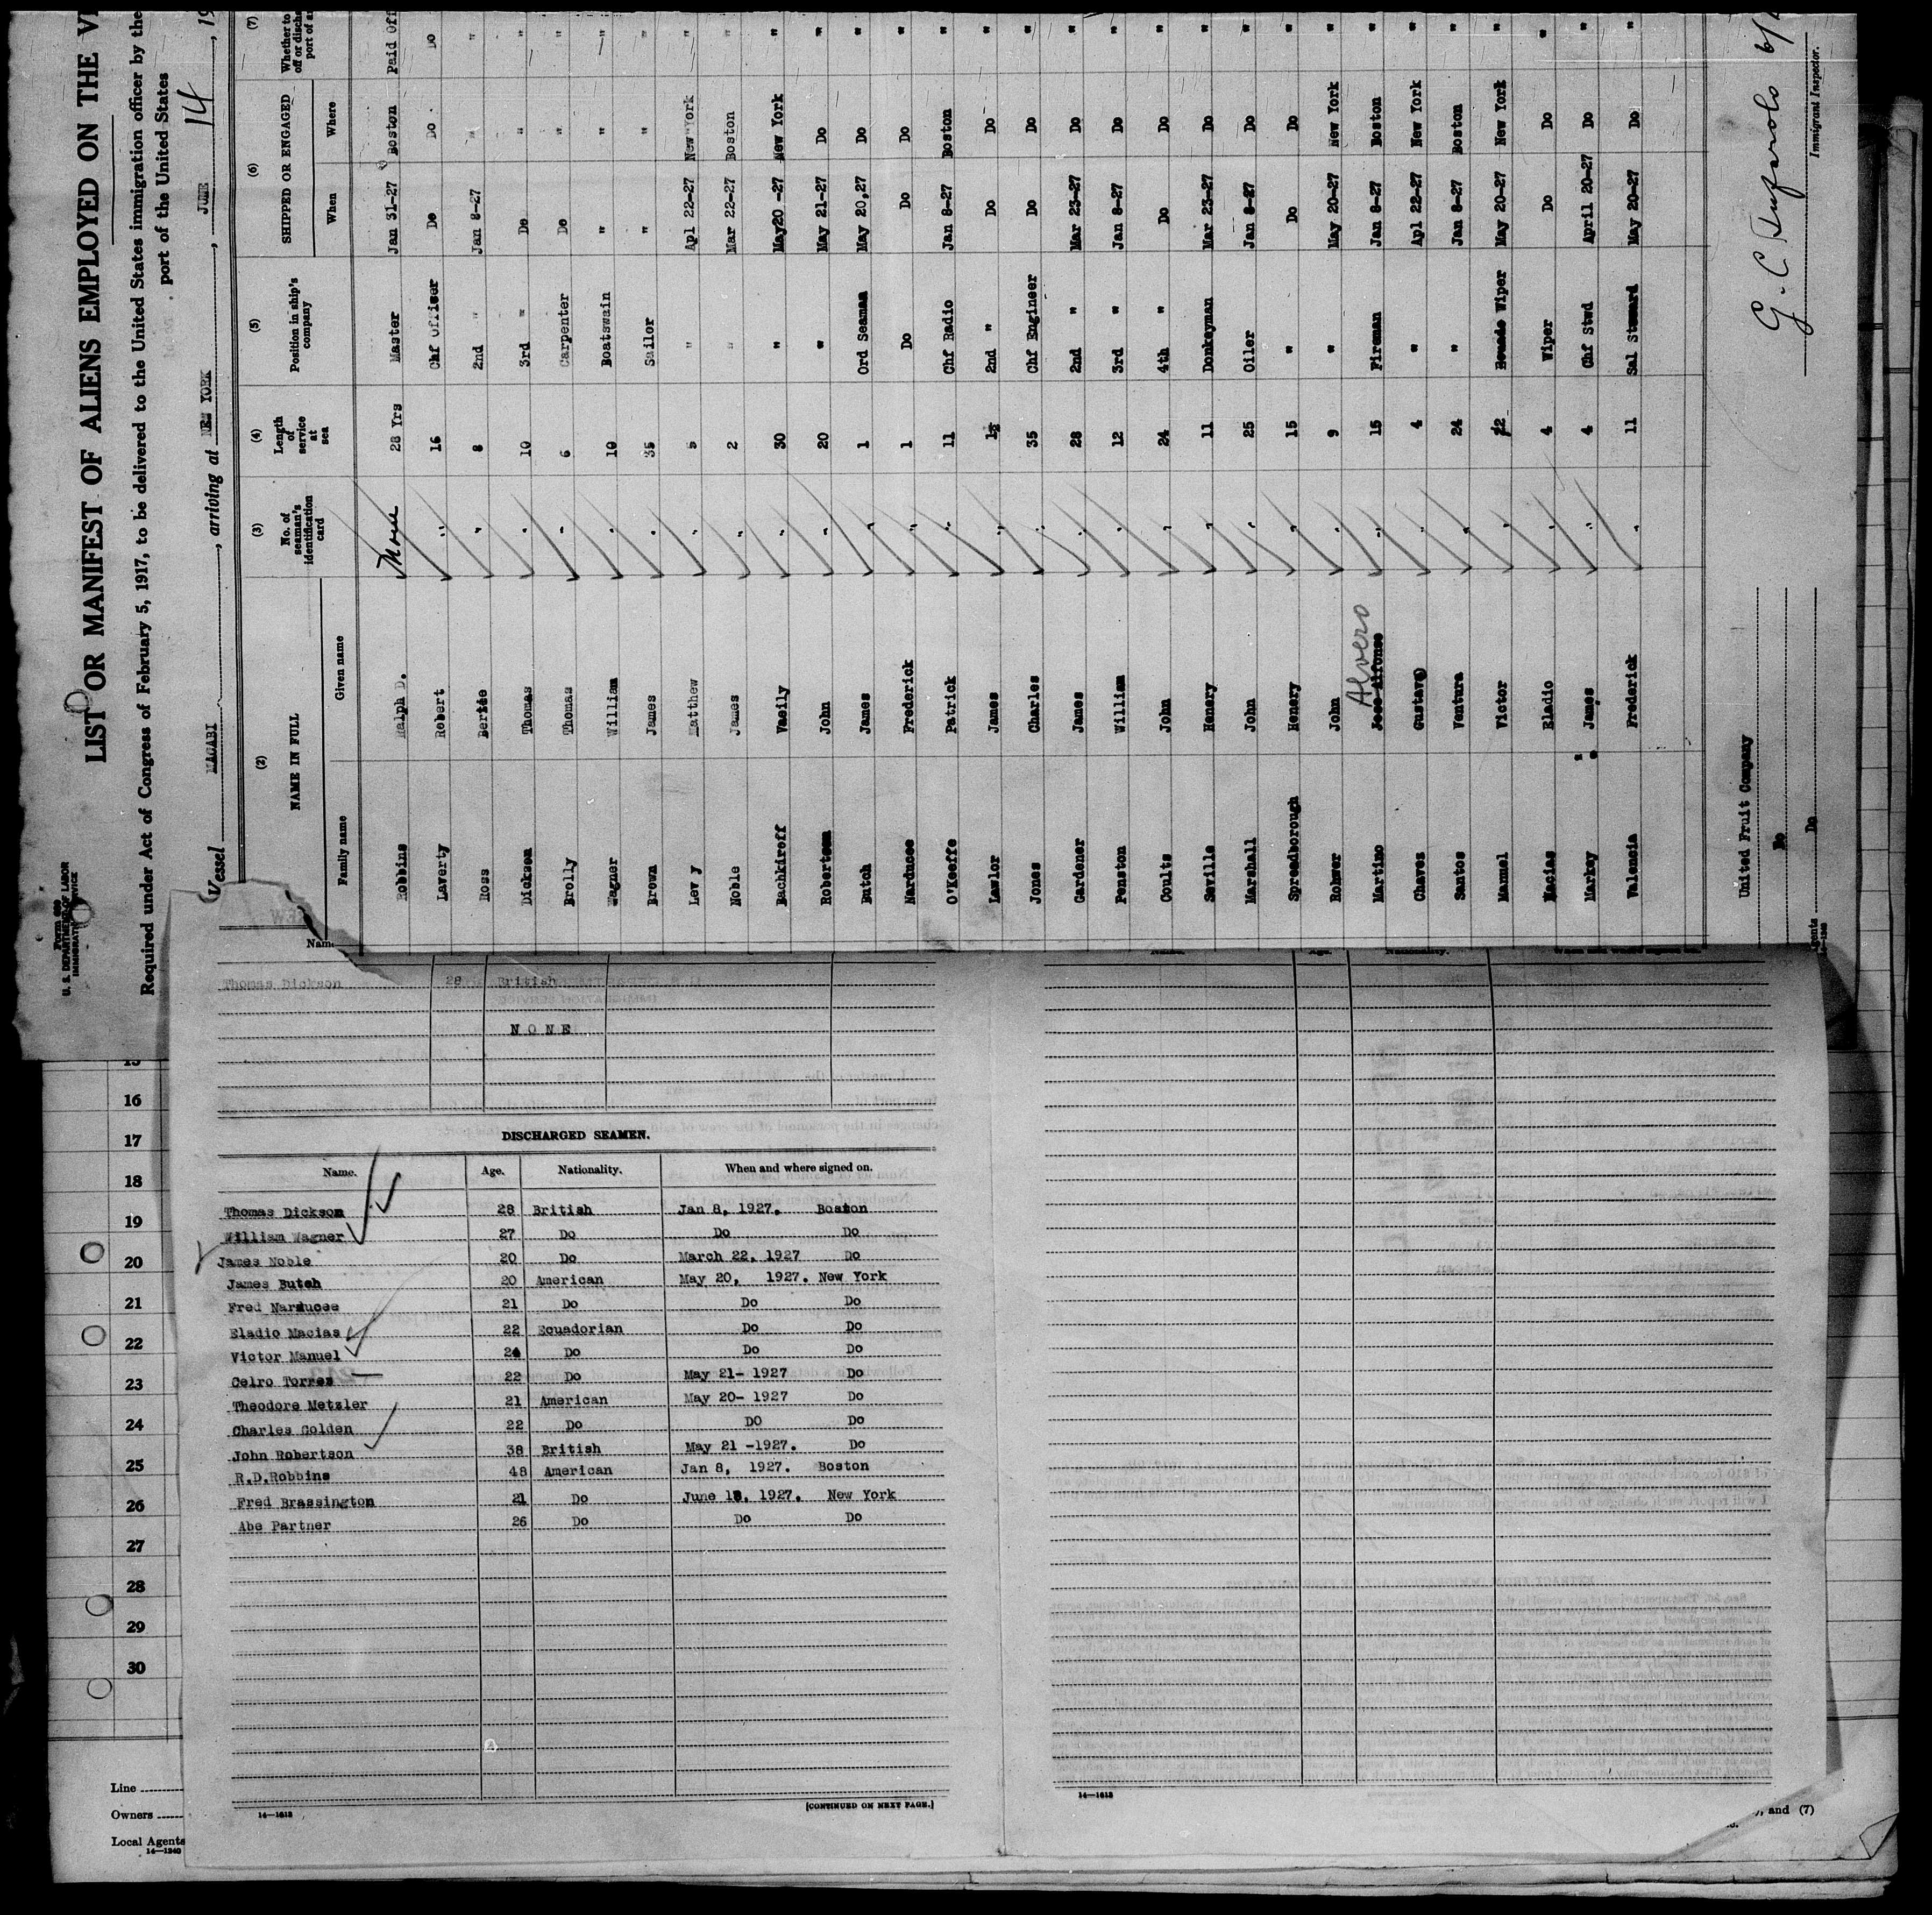 Form 689
U. S. DEPARTMENT OF LABOR
IMMIGRATION SERVICE
LIST OR MANIFEST OF ALIENS EMPLOYED ON THE
Required under Act of Congress of February 5, 1917, to be delivered to the United States immigration officer by the
port of the United States
Vessel MAGABI, arriving at NEW YORK, JUNE 14, 19
(2) (3) (4) (5) (6) (7)
NAME IN FULL No. of seaman's identification card Length of service at sea Position in ship's company SHIPPED OR ENGAGED Whether to
Family name Given name When Where
Robbins Ralph D. None 28 Yrs Master Jan 31-27 Boston Paid Off
Laverty Robert " 16 Chf Officer Do Do Do
Ross Bertie " 8 2nd " Jan 8-27 " "
Dickson Thomas " 10 3rd " Do " "
Brolly Thomas " 6 Carpenter Do " "
Wagner William " 10 Boatswain " " "
Brown James " 35 Sailor " " "
Levy Matthew " 5 " Apl 22-27 New York "
Noble James " 2 " Mar 22-27 Boston "
Bachkireff Vasily " 30 " May20-27 New York "
Robertson John " 20 " May 21-27 Do "
Butch James " 1 Ord Seaman May 20,27 Do "
Narducee Frederick " 1 Do Do Do "
O'Keeffe Patrick " 11 Chf Radio Jan 8-27 Boston "
Lawlor James " 2nd " Do Do "
Jones Charles " 35 Chf Engineer Do Do "
Gardener James " 28 2nd " Mar 23-27 Do "
Penston William " 12 3rd " Jan 8-27 Do "
Coults John " 24 4th " Do Do "
Seville Henery " 11 Donkeyman Mar 23-27 Do "
Marshall John " 25 Oiler Jan 8-27 Do "
Spreadborough Henery " 15 " Do Do "
Rohwer John " 9 " May 20-27 New York "
Martino Jose Alfonso Alvero " 15 Fireman Jan 8-27 Boston "
Chavez Gustavo " 4 " Apl 22-27 New York "
Santos Ventura " 24 " Jan 8-27 Boston "
Manuel Victor " Wiper May 20-27 New York "
Macias Eladio " 4 Wiper Do Do "
Markey James " 4 Chf Stwd April 20-27 Do "
Valencia Frederick " 11 Sal Steward May 20-27 Do "
United Fruit Company
Do
Agents Do
Immigrant Inspector.
Thomas Dickson 28 British
N O N E
DISCHARGED SEAMEN.
Name. Age. Nationality. When and where signed on.
Thomas Dickson 28 British Jan 8, 1927. Boston
William Wagner 27 Do Do Do
James Noble 20 Do March 22, 1927 Do
James Butch 20 American May 20, 1927. New York
Fred Narducee 21 Do Do Do
Eladio Macias 22 Ecuadorian Do Do
Victor Manuel 24 Do Do Do
Celro Torres 22 Do May 21- 1927 Do
Theodore Metzler 21 American May 20- 1927 Do
Charles Golden 22 Do DO Do
John Robertson 38 British May 21 -1927. Do
R.D.Robbins 48 American Jan 8, 1927. Boston
Fred Brassington 21 Do June 18, 1927. New York
Abe Partner 26 Do Do Do
14—1618 [CONTINUED ON NEXT PAGE.]
14—1618
16
17
18
19
20
21
22
23
24
25
26
27
28
29
30
Line
Owners
Local Agents
14—1240
), and (7)